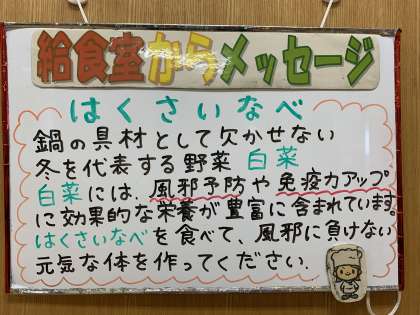 給食室からメッセージ
はくさいなべ
鍋の具材として欠かせない
冬を代表する野菜 白菜
白菜には、風邪予防や免疫力アップ
に効果的な栄養が豊富に含まれています。
はくさいなべを食べて、風邪に負けない
元気な体を作ってください。